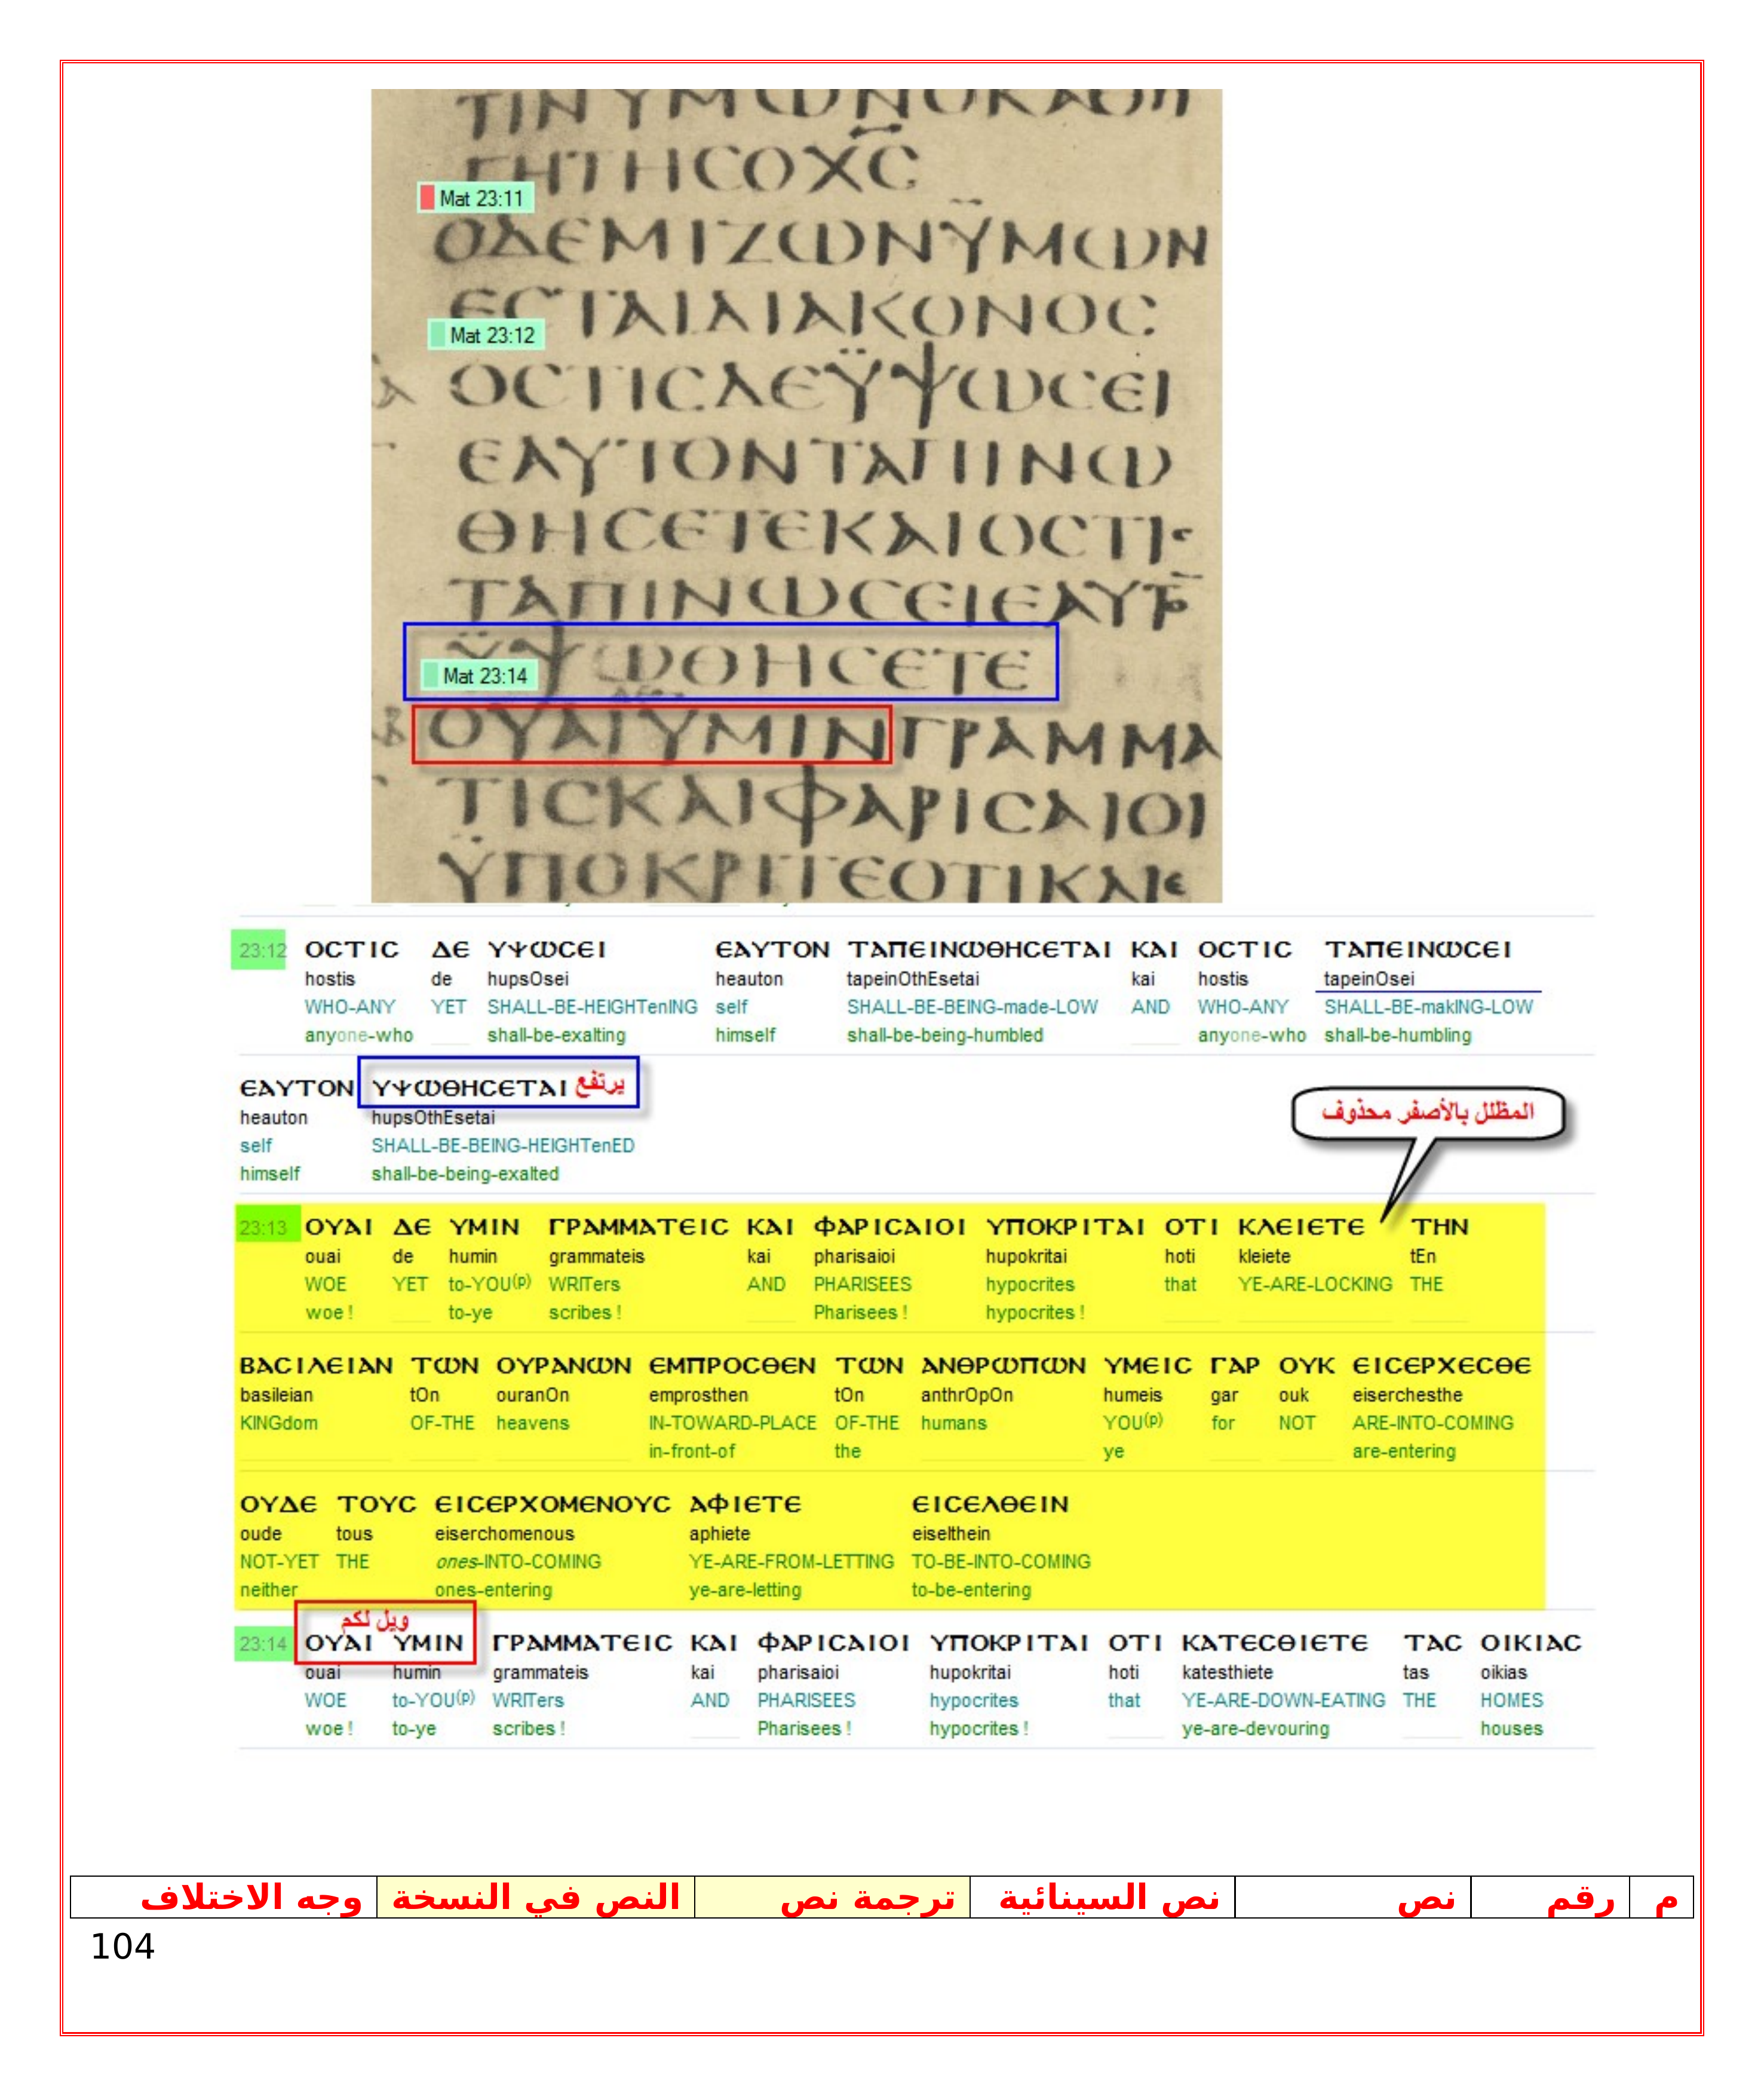 ΤΙΝΥΜΩΝΟΚΑΘΗ
ΓΗΤΗСΟΧС
Mat 23:11
ΟΔЄΜΙΖΩΝΫΜΩΝ
ЄСΤΑΙΔΙΑΚΟΝΟС
Mat 23:12
ΟСΤΙСΔЄΫΨΩСЄΙ
ЄΑΥΤΟΝΤΑΠΙΝΩ
ΘΗСЄΤЄΚΑΙΟСΤΙС
ΤΑΠΙΝΩСЄΙЄΑΥΤ
ΫΨΩΘΗСЄΤЄ
Mat 23:14
ΟΥΑΙΥΜΙΝΓΡΑΜΜΑ
ΤΙСΚΑΙΦΑΡΙСΑΙΟΙ
ΫΠΟΚΡΙΤЄΟΤΙΚΑΙ
23:12 ΟСΤΙС ΔЄ ΥΨΩСЄΙ ЄΑΥΤΟΝ ΤΑΠЄΙΝΩΘΗСЄΤΑΙ ΚΑΙ ΟСΤΙС ΤΑΠЄΙΝΩСЄΙ
hostis de hupsOsei heauton tapeinOthEsetai kai hostis tapeinOsei
WHO-ANY YET SHALL-BE-HEIGHTenING self SHALL-BE-BEING-made-LOW AND WHO-ANY SHALL-BE-makING-LOW
anyone-who shall-be-exalting himself shall-be-being-humbled anyone-who shall-be-humbling
ЄΑΥΤΟΝ ΥΨΩΘΗСЄΤΑΙ يرتفع
heauton hupsOthEsetai
self SHALL-BE-BEING-HEIGHTenED
himself shall-be-being-exalted
المظلل بالأصفر محذوف
23:13 ΟΥΑΙ ΔЄ ΥΜΙΝ ΓΡΑΜΜΑΤЄΙС ΚΑΙ ΦΑΡΙСΑΙΟΙ ΥΠΟΚΡΙΤΑΙ ΟΤΙ ΚΛЄΙЄΤЄ ΤΗΝ
ouai de humin grammateis kai pharisaioi hupokritai hoti kleiete tEn
WOE YET to-YOU(p) WRITers AND PHARISEES hypocrites that YE-ARE-LOCKING THE
woe ! to-ye scribes ! Pharisees ! hypocrites !
ΒΑСΙΛЄΙΑΝ ΤΩΝ ΟΥΡΑΝΩΝ ЄΜΠΡΟСΘЄΝ ΤΩΝ ΑΝΘΡΩΠΩΝ ΥΜЄΙС ΓΑΡ ΟΥΚ ЄΙСЄΡΧЄСΘЄ
basileian tOn ouranOn emprosthen tOn anthrOpOn humeis gar ouk eiserchesthe
KINGdom OF-THE heavens IN-TOWARD-PLACE OF-THE humans YOU(p) for NOT ARE-INTO-COMING
in-front-of the ye are-entering
ΟΥΔЄ ΤΟΥС ЄΙСЄΡΧΟΜЄΝΟΥС ΑΦΙЄΤЄ ЄΙСЄΛΘЄΙΝ
oude tous eiserchomenous aphiete eiselthein
NOT-YET THE ones-INTO-COMING YE-ARE-FROM-LETTING TO-BE-INTO-COMING
neither ones-entering ye-are-letting to-be-entering
ويل لكم
23:14 ΟΥΑΙ ΥΜΙΝ ΓΡΑΜΜΑΤЄΙС ΚΑΙ ΦΑΡΙСΑΙΟΙ ΥΠΟΚΡΙΤΑΙ ΟΤΙ ΚΑΤЄСΘΙЄΤЄ ΤΑС ΟΙΚΙΑС
ouai humin grammateis kai pharisaioi hupokritai hoti katesthiete tas oikias
WOE to-YOU(p) WRITers AND PHARISEES hypocrites that YE-ARE-DOWN-EATING THE HOMES
woe ! to-ye scribes ! Pharisees ! hypocrites ! ye-are-devouring houses
م رقم نص نص السينائية ترجمة نص النص في النسخة وجه الاختلاف
104